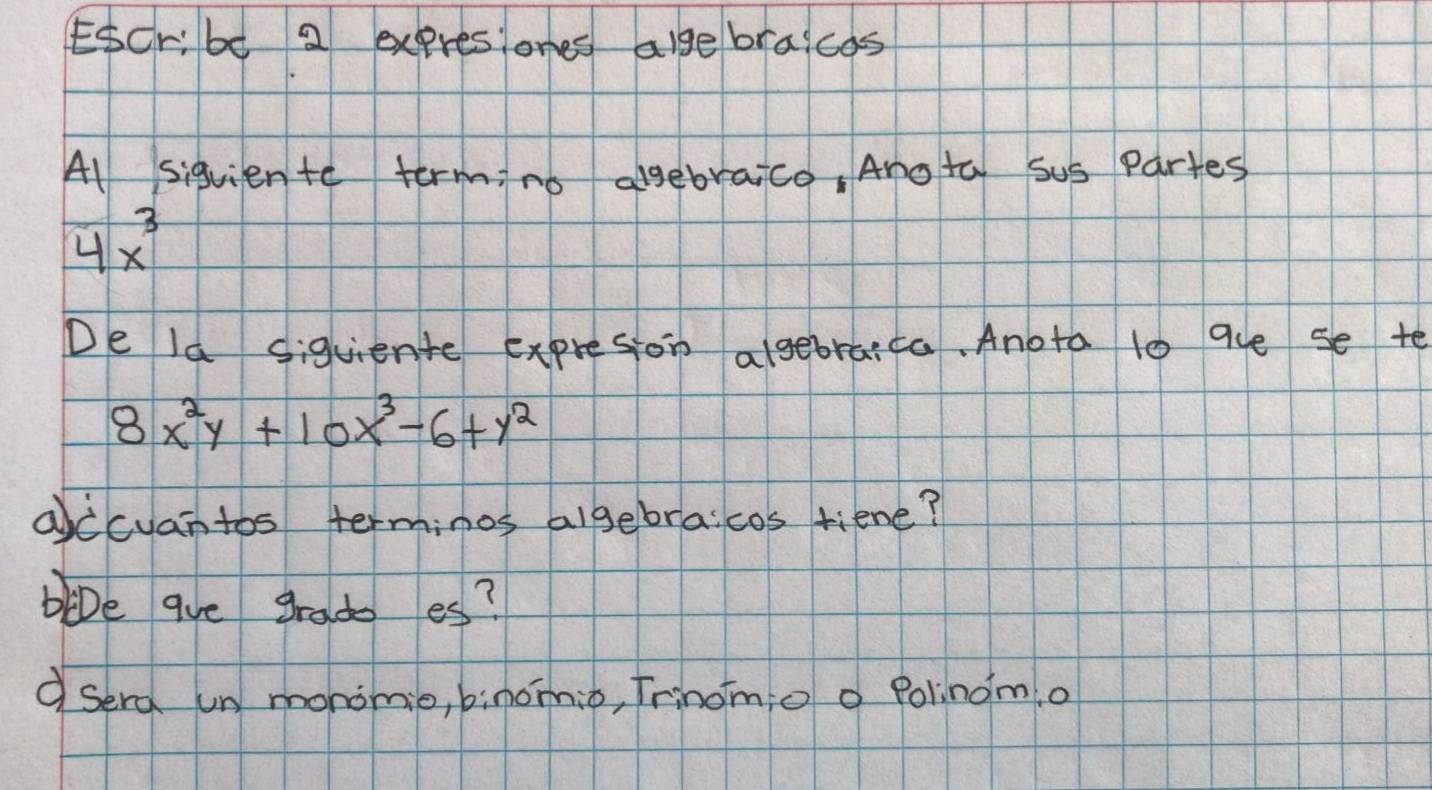 Escribe 2 expresiones algebraicas
Al siguiente termino algebraico, Anota sus Partes
4x³
De la siguiente expresión algebraica. Anota lo que se te
8x²y + 10x³ - 6 + y²
a) ¿cuántos terminos algebraicos tiene?
b) ¿De que grado es?
c) Sera un monómio, binómio, Trinómio o Polinómio